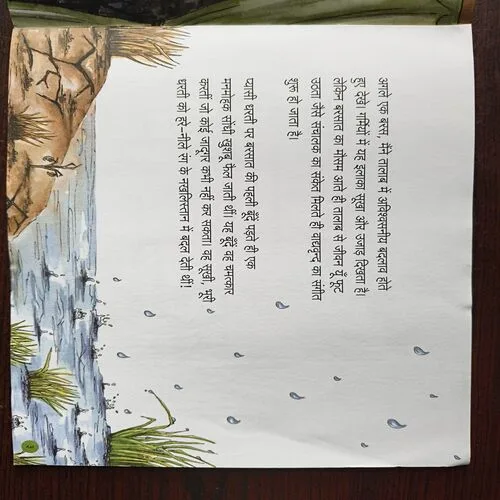 अगले एक बरस, मैंने तालाब में अविश्वसनीय बदलाव होते
हुए देखे। गर्मियों में यह इलाका सूखा और उजाड़ दिखता है।
लेकिन बरसात का मौसम आते ही तालाब से जीवन यूँ फूट
उठता जैसे संचालक का संकेत मिलते ही वाद्यवृन्द का संगीत
शुरू हो जाता है।
प्यासी धरती पर बरसात की पहली बूँदें पड़ते ही एक
मनमोहक सोंधी खुशबू फैल जाती थीं। यह बूँदें वह चमत्कार
करतीं जो कोई जादूगर कभी नहीं कर सकता। वह सूखी, भूरी
धरती को हरे-नीले रंग के नखलिस्तान में बदल देती थीं!